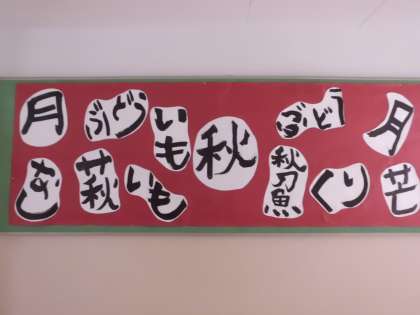 月
ぶどう
いも
秋
ぶどう
月
なし
萩
いも
秋刀魚
くり
芒